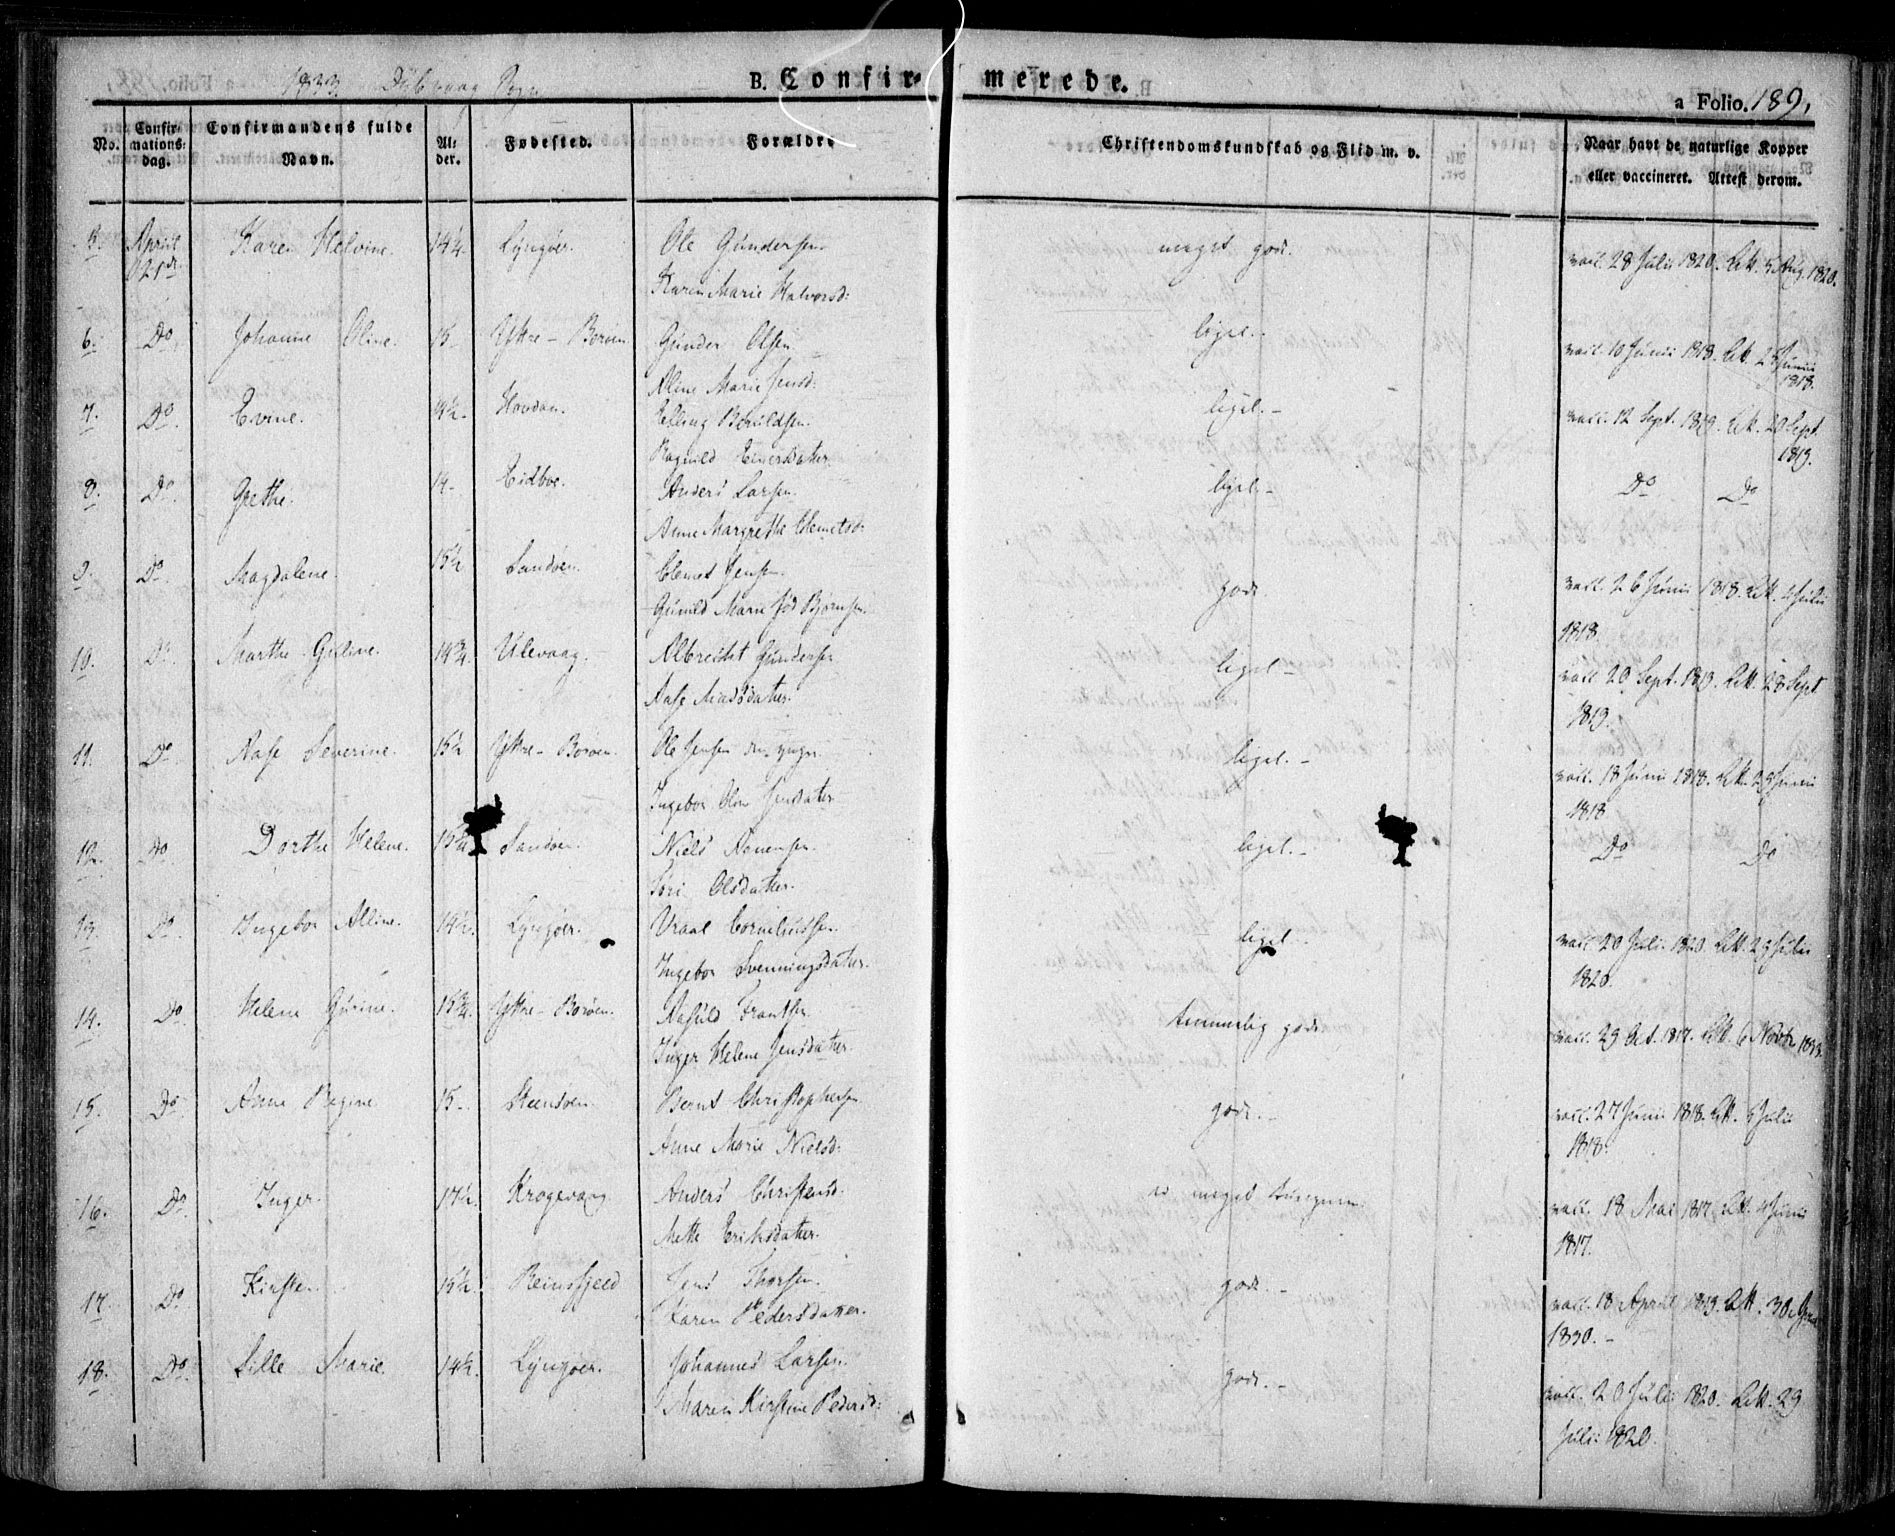 1833 Dybvaag Sogn
B. Confirmerede.
a Folio. 189,
No. Confirmationsdag. Confirmandens fulde Navn. Alder. Fødested. Forældre Christendomskundskab og Flid m. v. Naar havt de naturlige Kopper eller vaccineret. Attest derom.
5. April 21de Karen Helvine. 14¼. Lyngøer. Ole Gundersen meget god. vacc. 28 Julii 1820. Att. 5 Aug. 1820.
Karen Marie Halvorsd:
6. Do Johanne Oline. 15 Ystre-Borøen Gunder Olsen ligel. vacc. 10 Junii 1818. Att. 25 Junii 1818.
Aline Marie Jensd:
7. Do. Evine. 14½. Hovdan. Elling Boruldsen. ligel.- vacc. 12 Sept. 1819. Att. 20 Sept. 1819.
Ragnild Einersdatter
8. Do. Grethe. 14- Eidboe. Anders Larsen ligel.- Do Do
Anne Margrethe Clemetsd:
9. Do. Magdalene. 15½ Sandøen. Clemet Jensen. god. vacc. 26 Junii 1818. Att. 4 Julii 1818.
Gunild Marie fød Bjørnsen.
10. Do. Marthe Geline. 14¾. Ulevaag. Albrecht Gundersen ligel- vacc. 20 Sept. 1819. Att. 28 Sept 1819.
Aase Madsdatter
11. Do Aase Severine. 15½ Ystre-Borøen. Ole Jensen den yngr. ligel.- vacc. 18 Junii 1818. Att. 29 Junii 1818
Ingebor Jensdatter
12. Do Dorthe Helene. 15¾ Sandøen. Niels Aanensen. ligel.- Do Do
Siri Olsdatter.
13. Do. Ingebor Alline. 14½. Lyngøer. Vraal Corneliussen ligel. vacc. 20 Juli 1820. Att. 29 Julii 1820.
Ingebor Svenningsdatter.
14. Do. Helene Gurine. 15¾. Ystre-Borøen. Aasuld Frantsen temmelig god. vacc. 29 Oct. 1817. Att. 6 Novbr
Inger Helene Jensdatter.
15. Do Anne Regine 15- Steensøen Bernt Christophersen god.- vacc. 27 Junii 1818. Att. 5 Julii 1818.
Anne Marie Nielsd:
16. Do. Inger. 17½. Krogevaag Anders Christensd: meget vacc. 18 Mai 1817. Att. 4 Junii 1817.
Mette Eriksdatter.
17. Do. Kirsten. 15½ Reinsfjeld Jens Thorsen. god.- vacc. 18 April 1819. Att. 30 1830.-
Karen Pedersdatter.
18. Do. Sille Marie. 14½. Lyngøer. Johannes Larsen god.- vacc. 20 Juli 1820. Att. 29 Juli 1820.
Maren Kirstine Pedersd: